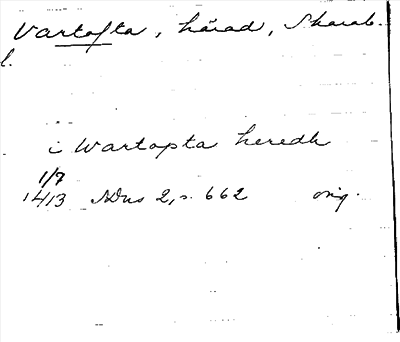 Vartofta, härad, Skarab.
l.
i Wartopta heredh
1/7
1413 SDns 2, s. 662 orig.